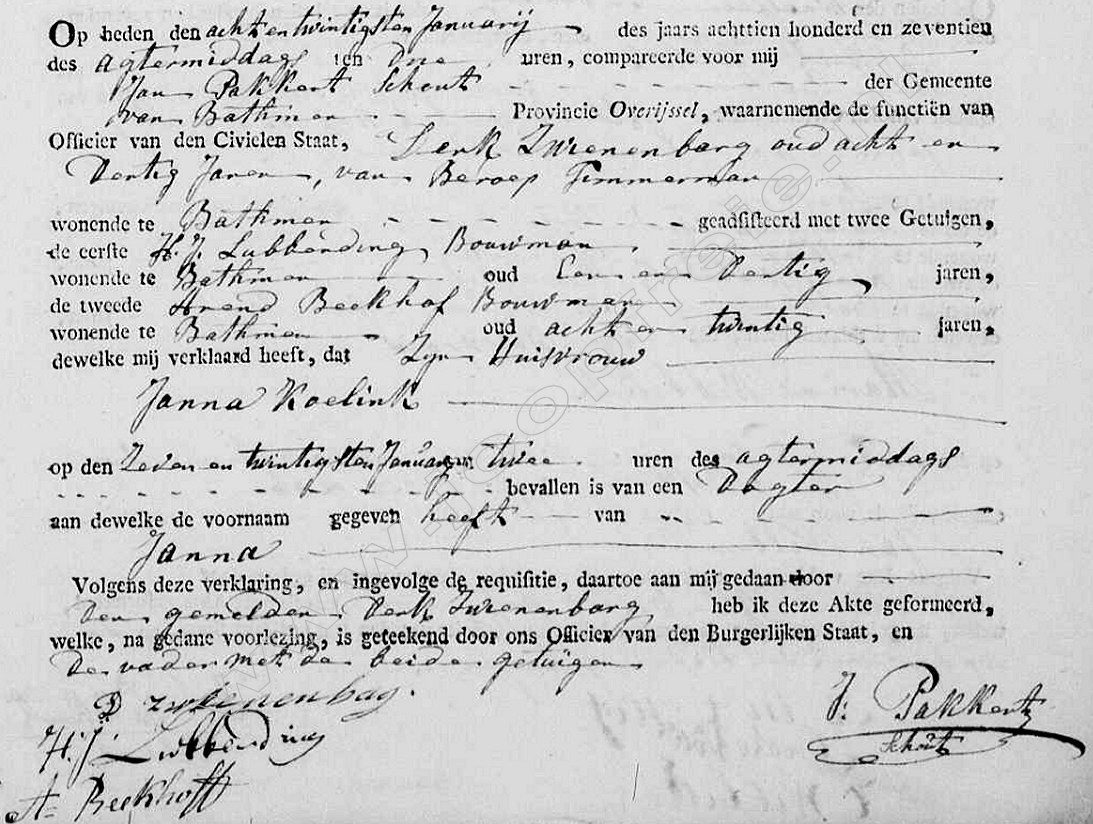 Op heden den acht en twintigsten Januarij des jaars achttien honderd en zeventien
des agtermiddags ten drie uren, compareerde voor mij
Jan Pakkert Schout der Gemeente
van Bathmen Provincie Overijssel, waarnemende de functiën van
Officier van den Civielen Staat, Derk Zwienenbarg oud acht en
Dertig Jaren, van Beroep Timmerman
wonende te Bathmen geadsisteerd met twee Getuigen,
de eerste H. J. Lubberding Bouwman
wonende te Bathmen oud Een en Dertig jaren,
de tweede Arend Beekhof Bouwman
wonende te Bathmen oud acht en twintig jaren,
dewelke mij verklaard heeft, dat Zyn Huisvrouw
Janna Koelink
op den Zeven en twintigsten Januarij twee uren des agtermiddags
bevallen is van een Dogter
aan dewelke de voornaam gegeven heeft van
Janna
Volgens deze verklaring, en ingevolge de requisitie, daartoe aan mij gedaan door
Den gemelden Derk Zwienenbarg heb ik deze Akte geformeerd,
welke, na gedane voorlezing, is geteekend door ons Officier van den Burgerlijken Staat, en
De vader met de beide getuigen
D zwienenbag.
J: Pakkert
Schout
H. J. Lubberding
A= Beekhoff